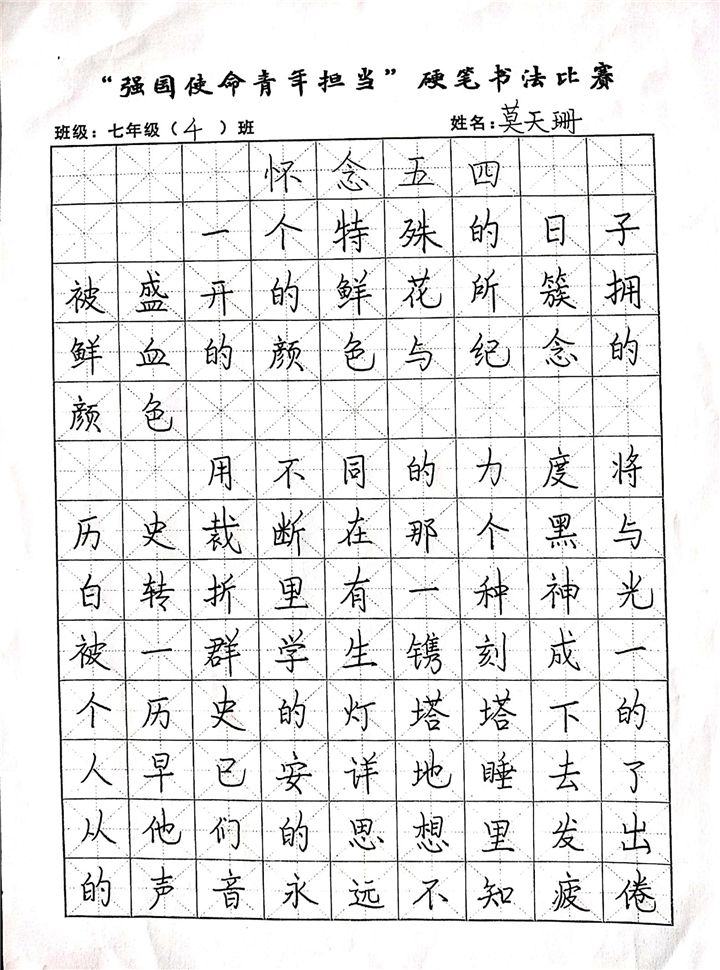 “强国使命青年担当”硬笔书法比赛
班级：七年级（4）班 姓名：莫天珊
怀念五四
一个特殊的日子
被盛开的鲜花所簇拥
鲜血的颜色与纪念的
颜色
用不同的力度将
历史裁断在那个黑与
白转折里有一种神光
被一群学生镌刻成一
个历史的灯塔塔下的
人早已安详地睡去了
从他们的思想里发出
的声音永远不知疲倦